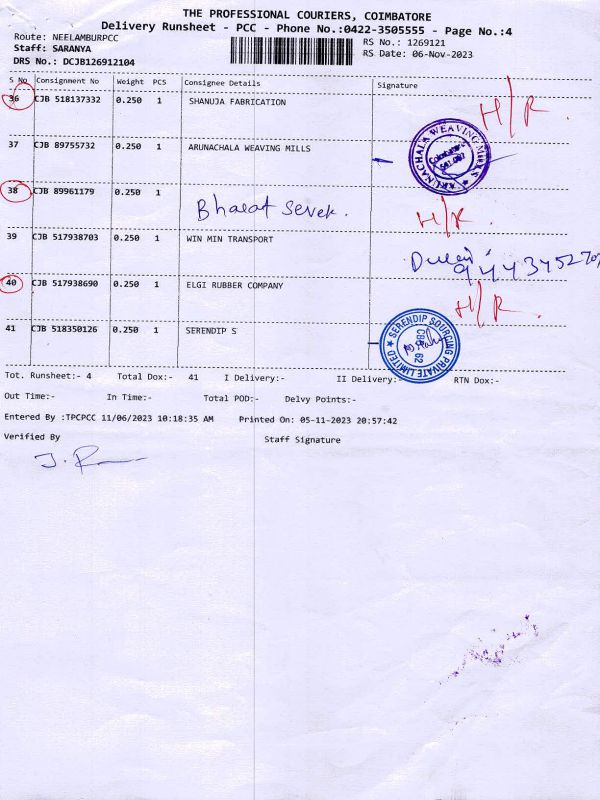 THE PROFESSIONAL COURIERS, COIMBATORE
Delivery Runsheet - PCC - Phone No.:0422-3505555 - Page No.:4
Route: NEELAMBURPCC
RS No.: 1269121
Staff: SARANYA
RS Date: 06-Nov-2023
DRS No.: DCJB126912104
S No Consignment No Weight PCS Consignee Details Signature
36 CJB 518137332 0.250 1 SHANUJA FABRICATION H/R.
37 CJB 89755732 0.250 1 ARUNACHALA WEAVING MILLS
ARUNACHALA WEAVING MILLS
38 CJB 89961179 0.250 1 Bharat Sevek. H/R.
39 CJB 517938703 0.250 1 WIN MIN TRANSPORT
40 CJB 517938690 0.250 1 ELGI RUBBER COMPANY H/R.
41 CJB 518350126 0.250 1 SERENDIP S
SERENDIP SOURCING PRIVATE LIMITED
CBE 62
Tot. Runsheet:- 4 Total Dox:- 41 I Delivery:- II Delivery:- RTN Dox:-
Out Time:- In Time:- Total POD:- Delvy Points:-
Entered By :TPCPCC 11/06/2023 10:18:35 AM Printed On: 05-11-2023 20:57:42
Verified By Staff Signature